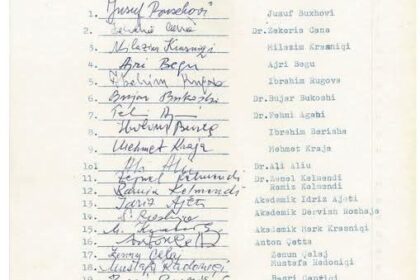 1. Jusuf Buxhovi
2. Dr.Zekeria Cana
3. Milazim Krasniqi Milazim Krasniqi
4. Ajri Begu Ajri Begu
5. Ibrahim Rugova Ibrahim Rugova
6. Bujar Bukoshi Dr.Bujar Bukoshi
7. Dr.Fehmi Agani
8. Ibrahim Berisha
9. Mehmet Kraja Mehmet Kraja
10. Ali Aliu Dr.Ali Aliu
11. Zenel Kelmendi Dr.Zenel Kelmendi
12. Ramiz Kelmendi Ramiz Kelmendi
13. Idriz Ajeti Akademik Idriz Ajeti
14. Akademik Dervish Rozhaja
15. Akademik Mark Krasniqi
16. Anton Çetta
17. Zenun Çelaj Zenun Çelaj
18. Mustafa Radoniqi Mustafa Radoniqi
19.